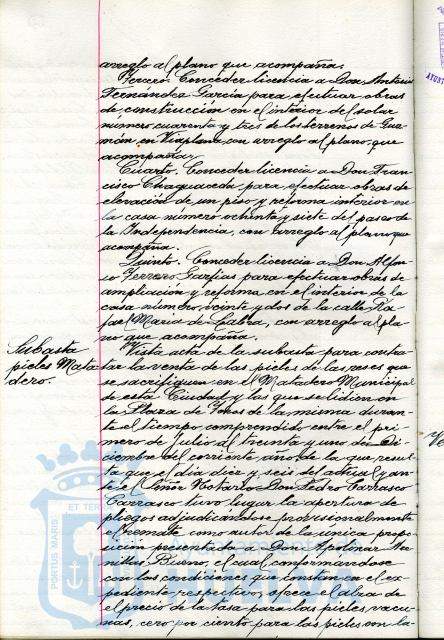 arreglo al plano que acompaña.
Tercero. Conceder licencia a Don Antonio
Fernández García para efectuar obras
de construcción en el interior del solar
número cuarenta y tres de los terrenos de Guz-
mán, en Viaplana, con arreglo al plano que
acompaña.
Cuarto. Conceder licencia a Don Fran-
cisco Chaguaceda para efectuar obras de
elevación de un piso y reforma interior en
la casa número ochenta y siete del paseo de
la Independencia, con arreglo al plano que
acompaña.
Quinto. Conceder licencia a Don Alfon-
so Ferrero Garfias para efectuar obras de
ampliación y reforma en el interior de la
casa número veinte y dos de la calle Ra-
fael María de Labra, con arreglo al pla-
no que acompaña.
Subasta
pieles Mata
dero.
Vista acta de la subasta para contra-
tar la venta de las pieles de las reses que
se sacrifiquen en el Matadero Municipal
de esta Ciudad y las que se lidien en
la Plaza de Toros de la misma duran-
te el tiempo comprendido entre el pri-
mero de Julio al treinta y uno de Di-
ciembre del corriente año, de la que resul-
ta que el día diez y seis del actual y an-
te el Señor Notario Don Pedro Carrasco
Carrasco, tuvo lugar la apertura de
pliegos adjudicándose provisionalmente
el remate como autor de la única propo-
sición presentada a Don Apolinar
Bueno, el cual conformándose
con las condiciones que constan en el ex-
pediente respectivo, ofrece el alza de
el precio de la tasa para las pieles vacu-
nas, cero por ciento para las pieles con la-
PORTUS MARIS
ET TERRAE
Ayuntamiento de
HUELVA